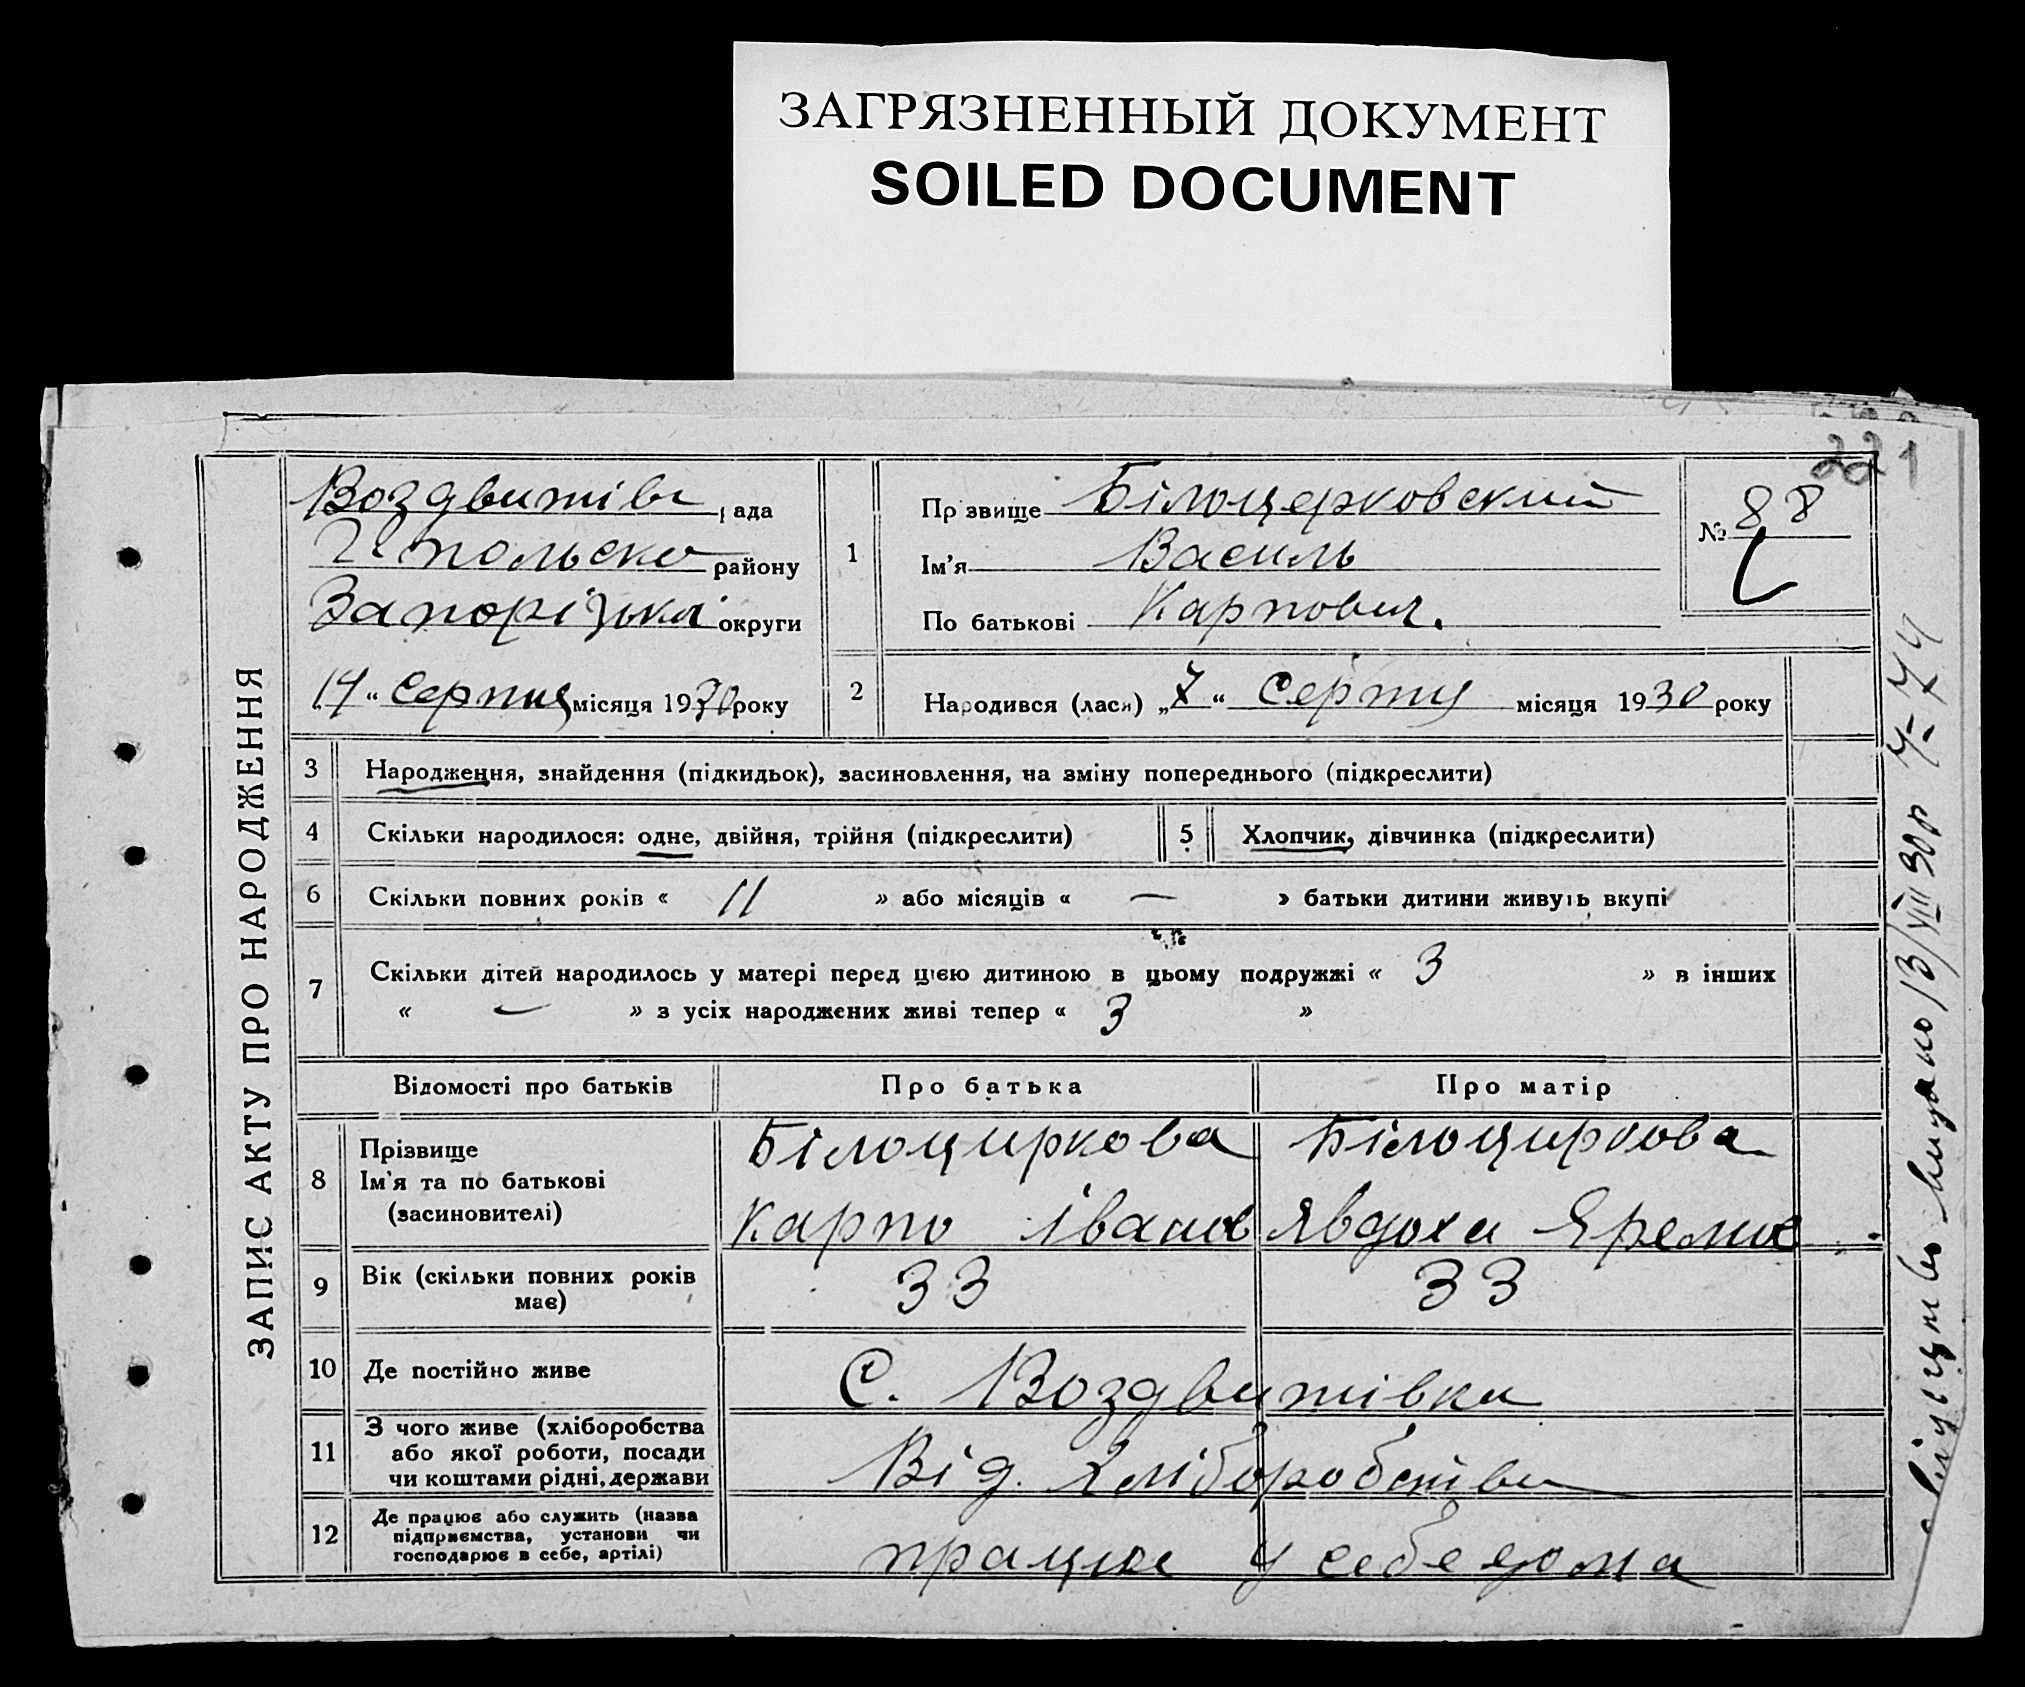 ЗАГРЯЗНЕННЫЙ ДОКУМЕНТ
SOILED DOCUMENT
221
ЗАПИС АКТУ ПРО НАРОДЖЕННЯ
Воздвижівк рада
польско району
Запорізької округи
14 “ Серпня місяця 1930 року
1
Прізвище Білоцерковский
Ім'я Василь
По батькові Карпович.
№ 88
2 Народився (лася) „7“ Серпня місяця 1930 року
3 Народження, знайдення (підкидьок), засиновлення, на зміну попереднього (підкреслити)
4 Скільки народилося: одне, двійня, трійня (підкреслити) 5 Хлопчик, дівчинка (підкреслити)
6 Скільки повних років « 11 » або місяців « — » батьки дитини живуть вкупі
7 Скільки дітей народилось у матері перед цією дитиною в цьому подружжі « 3 » в інших
« — » з усіх народжених живі тепер « 3 »
Відомості про батьків Про батька Про матір
8 Прізвище Білоциркова Білоциркова
Ім'я та по батькові
(засиновителі) Карпо Іванов Явдоха Яремів
9 Вік (скільки повних років має) 33 33
10 Де постійно живе С. Воздвижівка
11 З чого живе (хліборобства
або якої роботи, посади
чи коштами рідні, держави Від. Хліборобства
12 Де працює або служить (назва
підприємства, установи чи
господарює в себе, артілі) працює у себе дома
13/VIII 30р